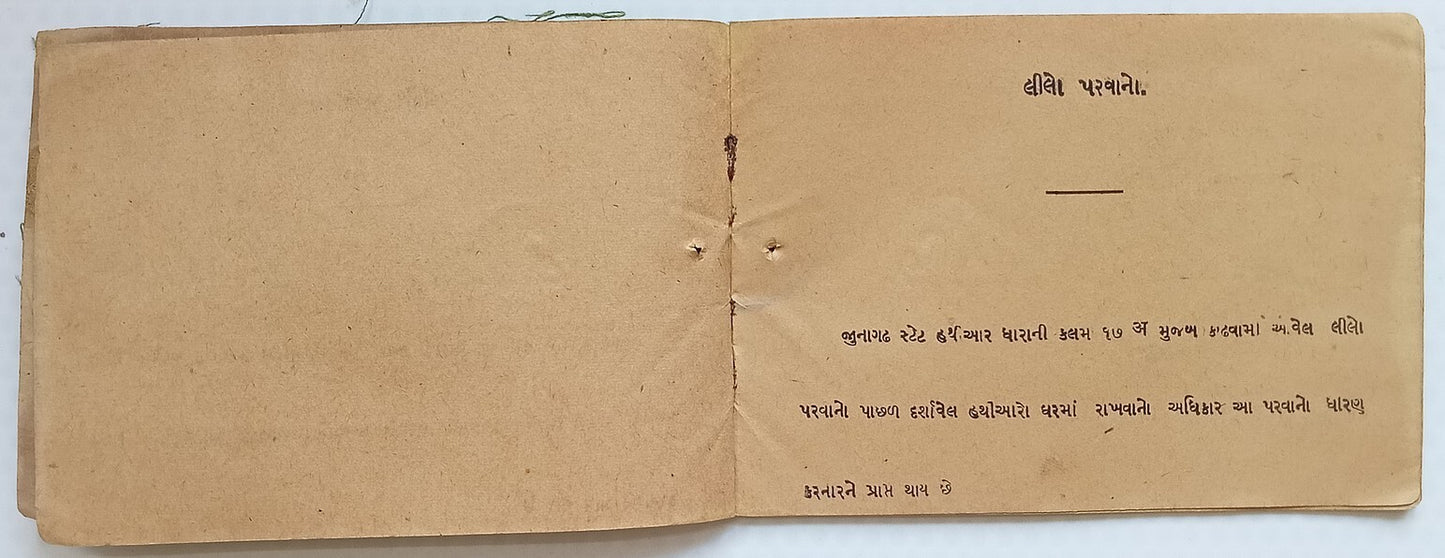 લીલો પરવાનો.
જીુનાગઢ સ્ટેટ હથીઆર ધારાની કલમ ૧૭ अ મુજબ કાઢવામાં આવેલ લીલો
પરવાનો પાછળ દર્શાવેલ હથીઆરો ઘરમાં રાખવાનો અધિકાર આ પરવાનો ધારણ
કરનારને પ્રાપ્ત થાય છે